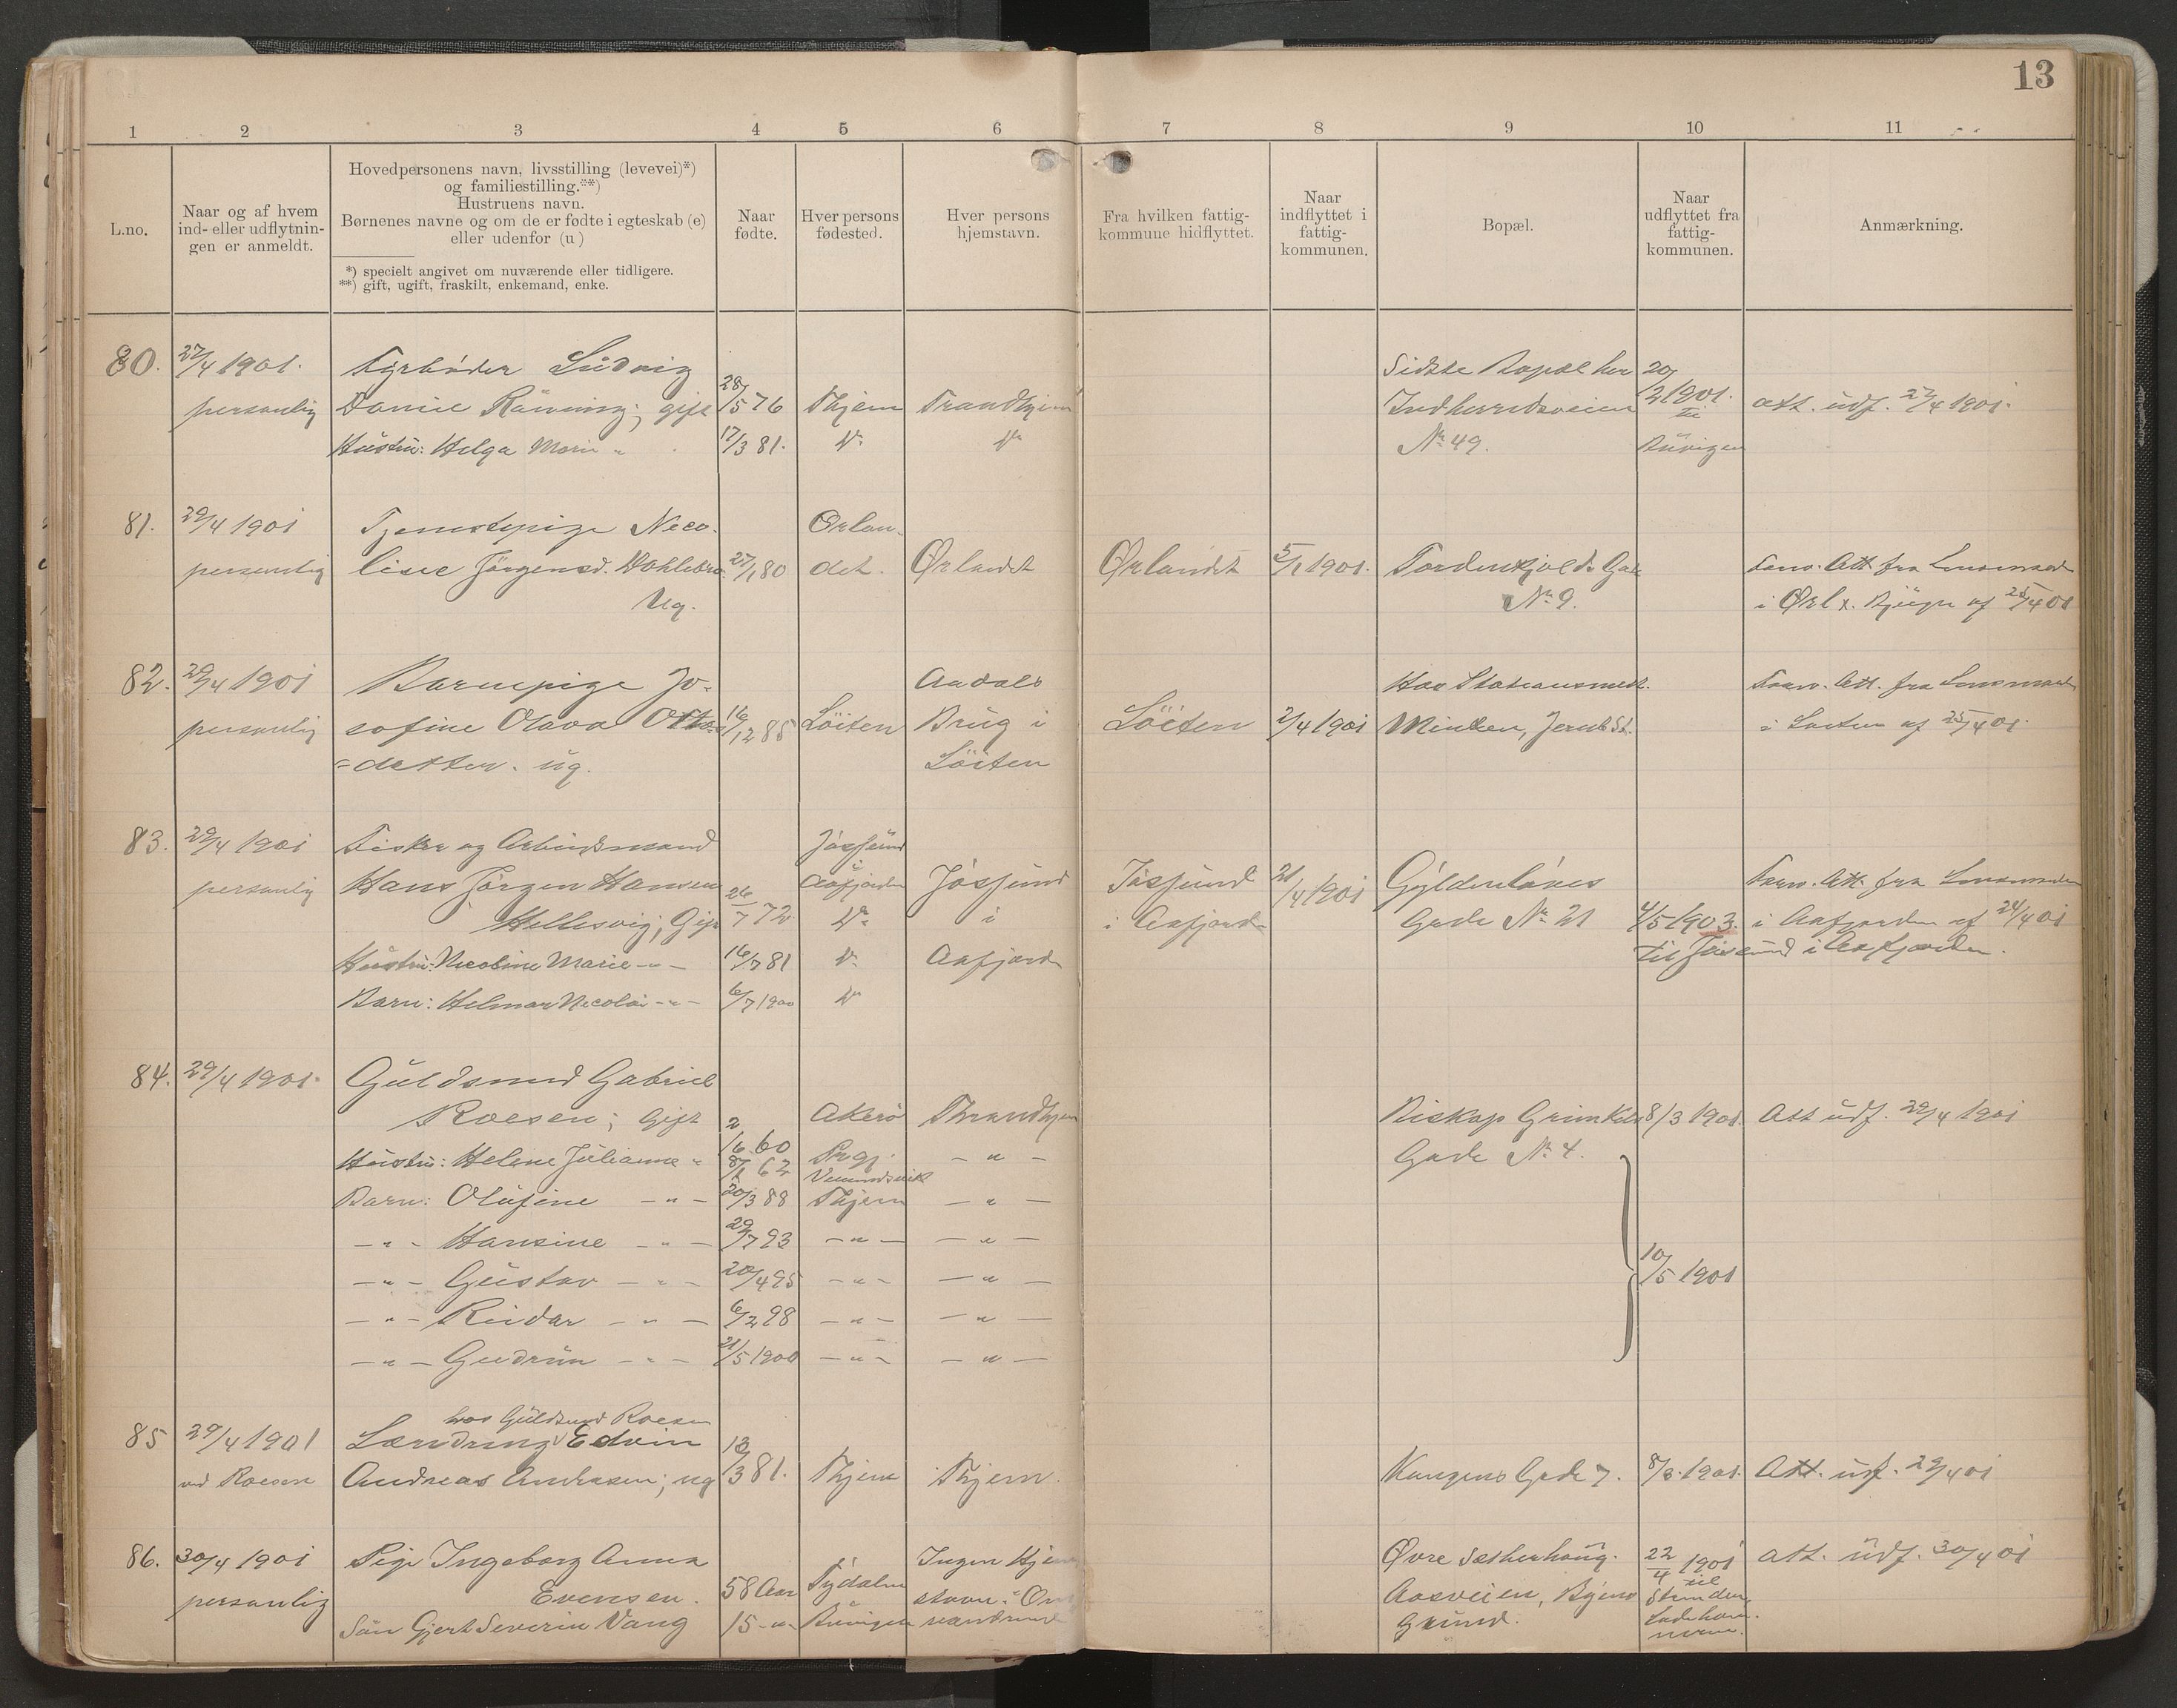 13
1 2 3 4 5 6 7 8 9 10 11
L.no.
Naar og af hvem
ind- eller udflytnin-
gen er anmeldt.
Hovedpersonens navn, livsstilling (levevei)*)
og familiestilling.**)
Hustruens navn.
Børnenes navne og om de er fødte i egteskab (e)
eller udenfor (u)
*) specielt angivet om nuværende eller tidligere.
**) gift, ugift, fraskilt, enkemand, enke.
Naar
fødte.
Hver persons
fødested.
Hver persons
hjemstavn.
Fra hvilken fattig-
kommune hidflyttet.
Naar
indflyttet i
fattig-
kommunen.
Bopæl.
Naar
udflyttet fra
fattig-
kommunen.
Anmærkning.
80. 27/4 1901. Fyrbøder Ludvig Sidste Bopæl her 20/
personlig Danie Rönning; gift 28/5 76 Thjem Trondhjem Indherredsveien 2 1901. att. udf. 27/4 1901.
Hustru: Helga Marie " 17/3 81. Do Do No 49. til Buvigen
81. 29/4 1901 Tjenestepige Neco- Ørlan-
personlig line Jörgensd. Dahlebra 27/1 80 det. Ørlandet Ørlandet 5/1 1901. Tordenskjolds Gade Att. fra Lensmanden
Ug. No 9. i Ørl. Bjugn af 25/4 01
82. 29/4 1901 Barnepige Jo- Aadals Hos Stationsmest.
personlig sefine Olava Otto- 16/12 85 Löiten Brug i Löiten 2/4 1901 Minken, Jernb.St. Att. fra Lensmanden
=datter. ug. Löiten i Löiten af 25/4 01.
83. 29/4 1901 Fisker og Arbeidsmand Jössund
personlig Hans Jörgen Hansen 26/7 72 i Aafjorden Jössund Jössund 21/4 1901 Gyldenlöves Att. fra Lensmanden
Hellesvig; Gift Do i i Aafjorden Gade No 21 4/5 1903. i Aafjorden af 24/4 01
Hustru: Necoline Marie -"- 16/7 81 Do Aafjord til Jössund i Aafjorden.
Barn: Helmar Necolai -"- 6/7 1900 Do
84. 29/4 1901. Guldsmed Gabriel
Roesen; Gift 2/6 60 Akerö Thrandhjem Biskop Grimkels 8/3 1901. Att udf. 29/4 1901
Hustru: Helene Julianne " 8/1 62 -"- Gade No 4.
Barn: Olufine -"- 20/3 88 Thjem -"-
-"- Hansine -"- 29/7 93 -"- -"-
-"- Gustav -"- 20/4 95 -"- -"- 10/5 1901
-"- Reidar -"- 6/2 98 -"- -"-
-"- Gudrun -"- 21/5 1900 -"- -"-
hos Guldsmed Roesen
85 29/4 1901 Læredreng Edvin
ved Roesen Andreas Andersen; ug 13/3 81. Thjem Thjem. Kongens Gade 7. 8/3 1901. Att. udf. 29/4 01
86. 30/4 1901 Pige Ingeborg Anna Ingen Hjem- Øvre Sæsherhaug. 22/4 1901 att. udf. 30/4 01
personlig Evensen. 58 Aar Tydalen stavn. Om- Aasveien, Byens til Strinden,
Sön Gjert Severin Vang 15 -"- Buvigen vandrende Grund. Ladeham-
meren.